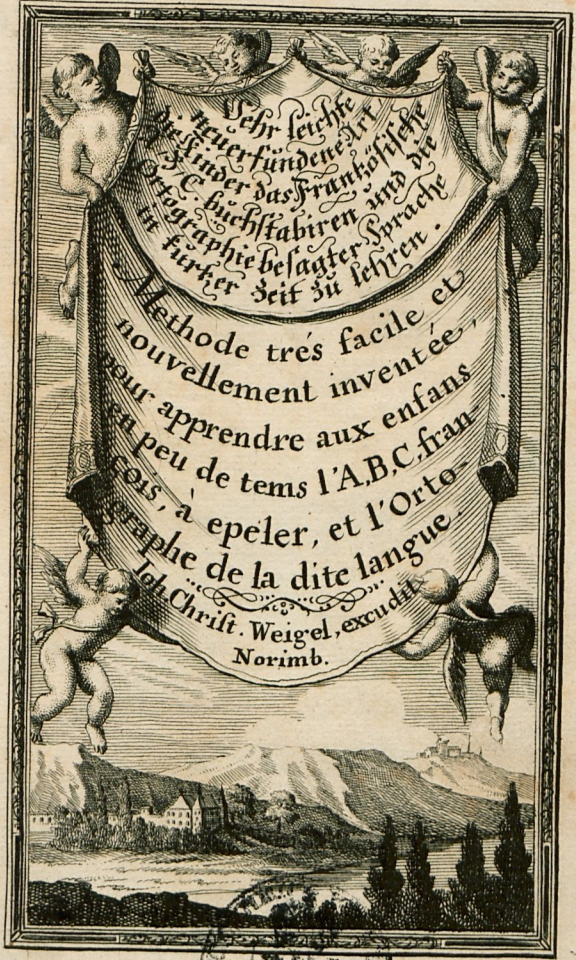 Sehr leichte
neuerfundene Art
die Kinder das Frantzösische
A. B, C. buchstabiren und die
Ortographie besagter Sprache
in kurtzer Zeit zu lehren.
Methode trés facile et
nouvellement inventée,
pour apprendre aux enfans
en peu de tems l'A,B,C,fran-
cois, à epeler, et l'Orto-
graphe de la dite langue.
Joh. Christ. Weigel, excudit
Norimb.